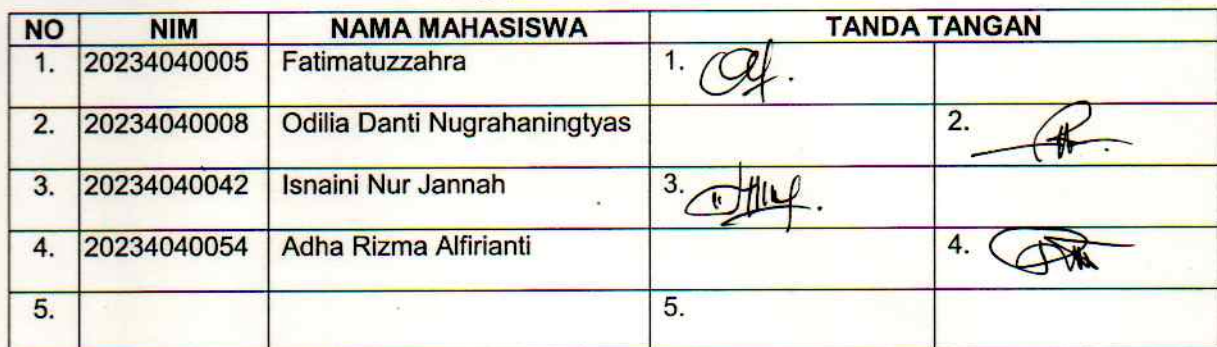 NO NIM NAMA MAHASISWA TANDA TANGAN
1. 20234040005 Fatimatuzzahra 1.
2. 20234040008 Odilia Danti Nugrahaningtyas 2.
3. 20234040042 Isnaini Nur Jannah 3.
4. 20234040054 Adha Rizma Alfirianti 4.
5. 5.